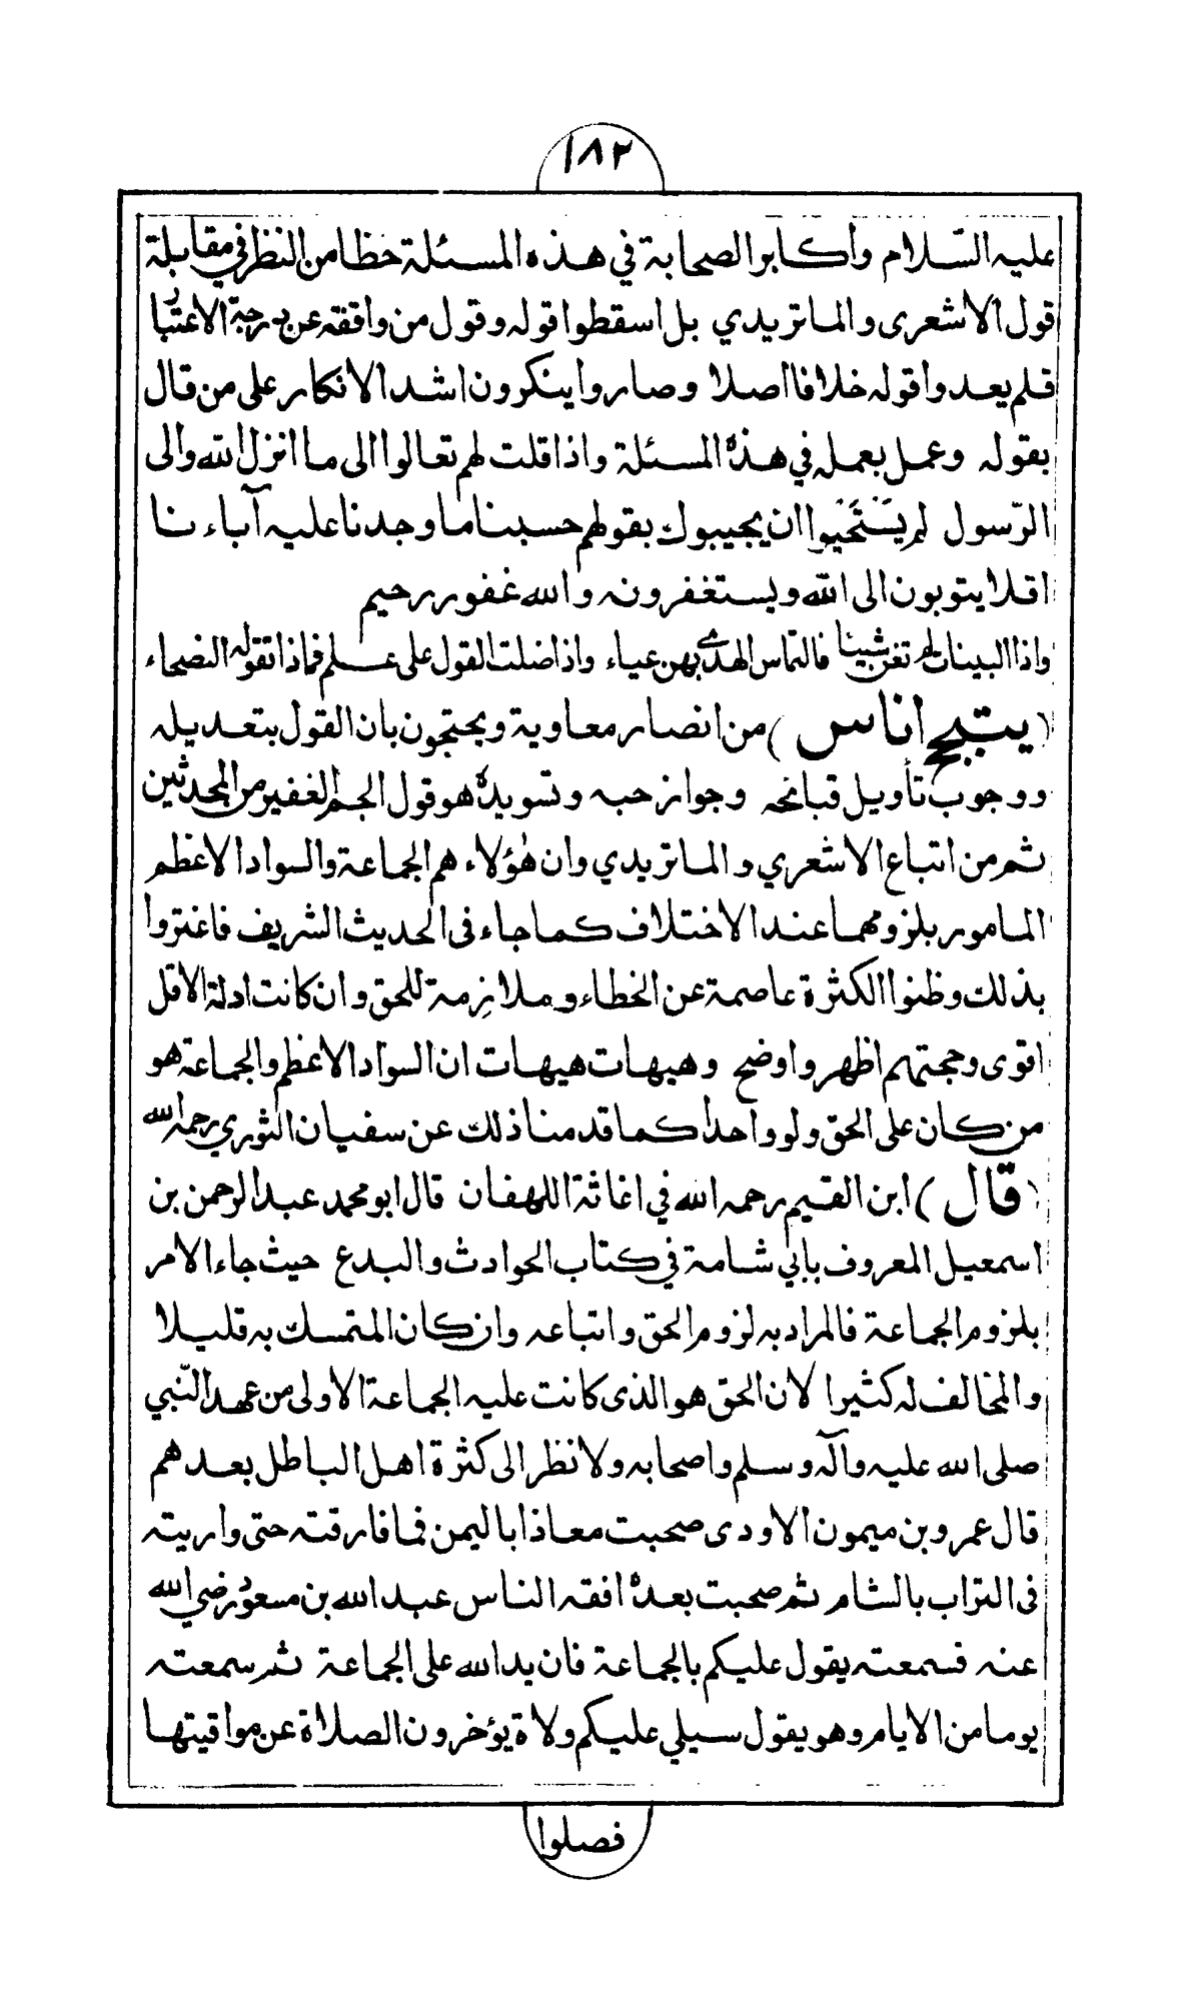 ١٨٢
عليه السّلام وأكابر الصحابة في هذه المسئلة حظا من النظر في مقابلة
قول الاشعرى والماتريدي بل اسقطوا قوله وقول من وافقه عن درجة الاعتبار
فلم يعدوا قوله خلافا اصلا وصاروا ينكرون اشد الانكار على من قال
بقوله وعمل بعمله في هذه المسئلة واذا قلت لهم تعالوا الى ما انزل الله والى
الرّسول لم يَسْتَحْيُوا ان يجيبوك بقولهم حسبنا ما وجدنا عليه آباءنا
افلا يتوبون الى الله ويستغفرونه والله غفور رحيم
واذا البينات لم تغن شيئا فالتماس الهدى بهن عياء واذا ضلت العقول على علم فماذا تقوله النصحاء
(يتبجح اناس) من انصار معاوية ويحتجون بان القول بتعديله
ووجوب تأويل قبائحه وجواز حبه وتسويده هو قول الجم الغفير من المحدثين
ثم من اتباع الاشعري والماتريدي وان هٰؤلاء هم الجماعة والسواد الاعظم
المامور بلزومهما عند الاختلاف كما جاء فى الحديث الشريف فاغتروا
بذلك وظنوا الكثرة عاصمة عن الخطاء وملازِمة للحق وان كانت ادلة الاقل
اقوى وحجتهم اظهر واوضح وهيهات هيهات ان السواد الاعظم والجماعة هو
من كان على الحق ولو واحدا كما قدمنا ذلك عن سفيان الثوري رحمه الله
(قال) ابن القيم رحمه الله في اغاثة اللهفان قال ابو محمد عبد الرحمن بن
اسمعيل المعروف بابي شامة في كتاب الحوادث والبدع حيث جاء الامر
بلزوم الجماعة فالمراد به لزوم الحق واتباعه وان كان المتمسك به قليلا
والمخالف له كثيرا لان الحق هو الذى كانت عليه الجماعة الاولى من عهد النّبي
صلى الله عليه وآله وسلم واصحابه ولا نظر الى كثرة اهل الباطل بعدهم
قال عمرو بن ميمون الاودى صحبت معاذا باليمن فما فارقته حتى واريته
فى التراب بالشام ثم صحبت بعده افقه الناس عبد الله بن مسعود رضي الله
عنه فسمعته يقول عليكم بالجماعة فان يد الله على الجماعة ثم سمعته
يوما من الايام وهو يقول سيلي عليكم ولاة يؤخرون الصلاة عن مواقيتها
فصلوا